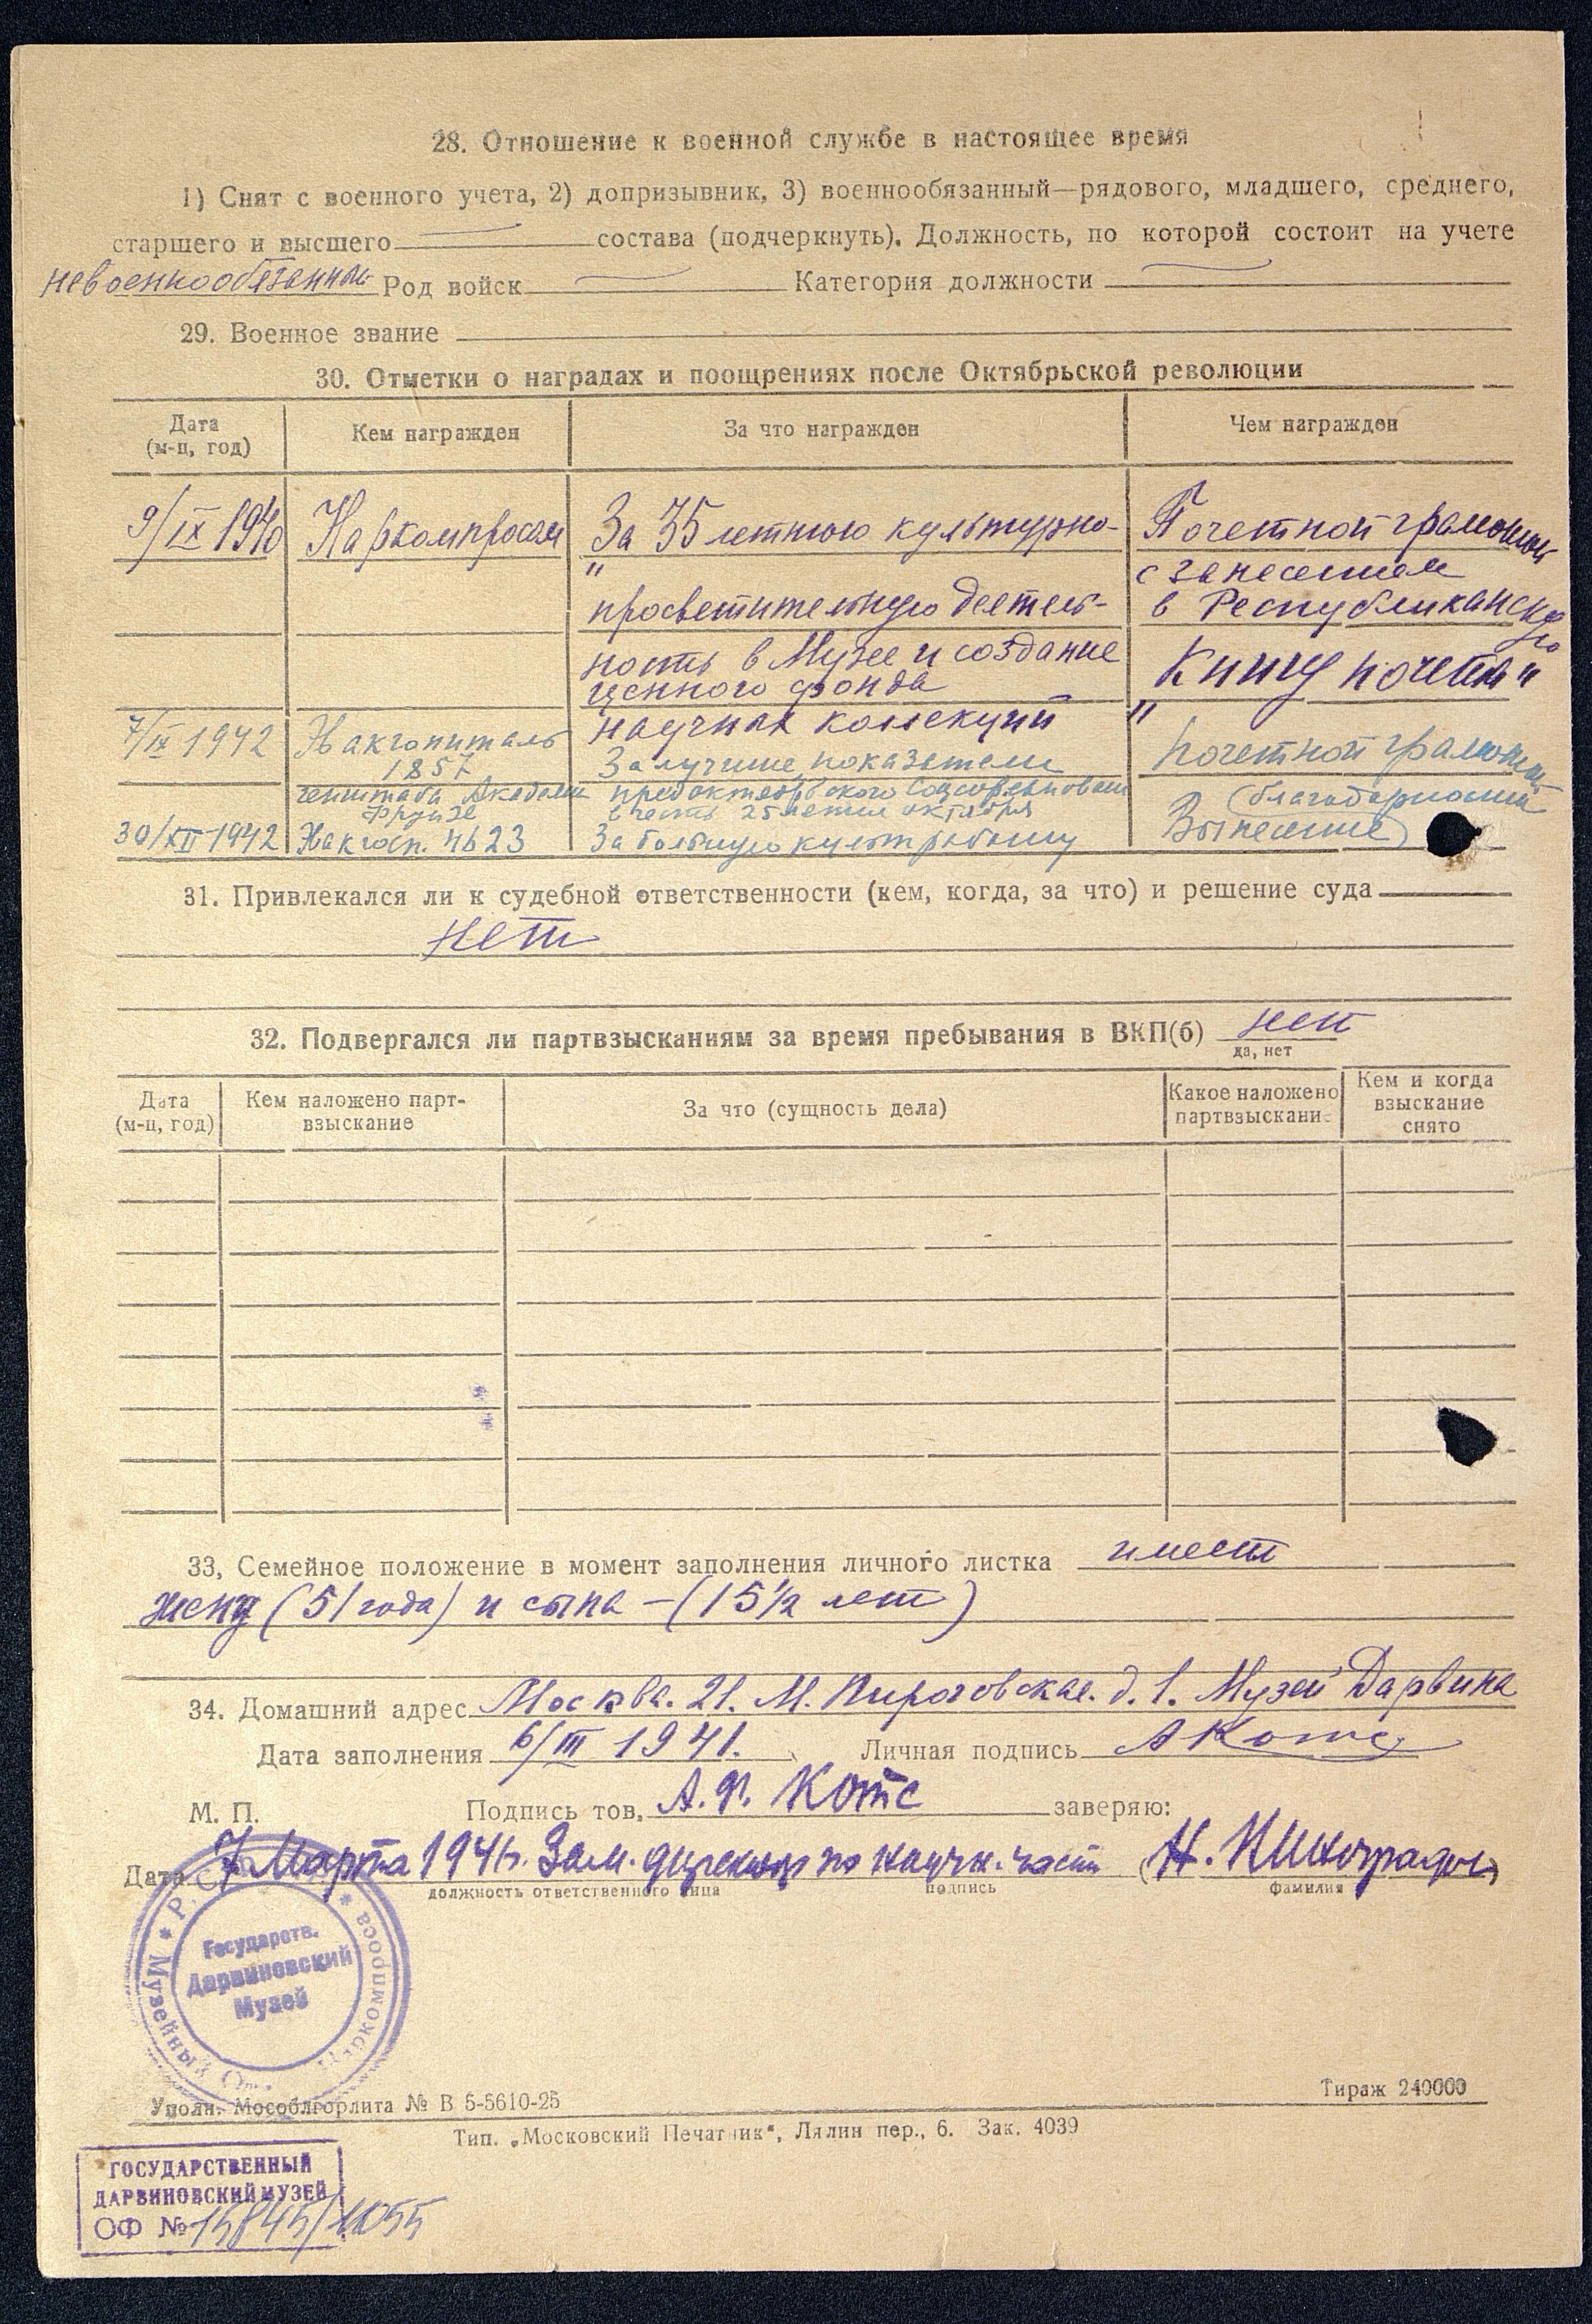 28. Отношение к военной службе в настоящее время
1) Снят с военного учета, 2) допризывник, 3) военнообязанный—рядового, младшего, среднего,
старшего и высшего состава (подчеркнуть). Должность, по которой состоит на учете
невоеннообязанный Род войск Категория должности
29. Военное звание
30. Отметки о наградах и поощрениях после Октябрьской революции
Дата (м-ц, год) Кем награжден За что награжден Чем награжден
9/IX 1940 Наркомпросом За 35 летнюю культурно- Почетной грамотой
" с занесением
просветительную деятель- в Республиканскую
ность в Музее и создание Книгу почета"
ценного фонда
научных коллекций "
7/IX 1942 Эвакгоспиталь За лучшие показатели почетной грамотой
1857
генштаба Академии предоктябрьского Соцсоревнования (благодарности
Фрунзе в честь 25 летия октября
30/XII 1942 Эвакгосп. 4623 За большую культработу Вынесение)
31. Привлекался ли к судебной ответственности (кем, когда, за что) и решение суда
нет
32. Подвергался ли партвзысканиям за время пребывания в ВКП(б) нет
да, нет
Дата (м-ц, год) Кем наложено парт-взыскание За что (сущность дела) Какое наложено партвзыскание Кем и когда взыскание снято
33. Семейное положение в момент заполнения личного листка имеет
жену (51 года) и сына — (15 1/2 лет)
34. Домашний адрес Москва. 21. М. Пироговская. д. 1. Музей Дарвина
Дата заполнения 6/III 1941. Личная подпись АКотс
М. П. Подпись тов. А. Ф. Котс заверяю:
Дата 7 Марта 1941г. Зам. директор по научн. части (Н.
должность ответственного лица подпись фамилия
Государств.
Дарвиновский
Музей
Музейный Наркомпроса
Уполн. Мособлгорлита № В 5-5610-25 Тираж 240000
Тип. „Московский Печатник“, Лялин пер., 6. Зак. 4039
ГОСУДАРСТВЕННЫЙ
ДАРВИНОВСКИЙ МУЗЕЙ
ОФ №